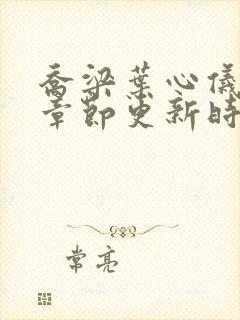 乔梁葉心儀
章節更新時
常亮